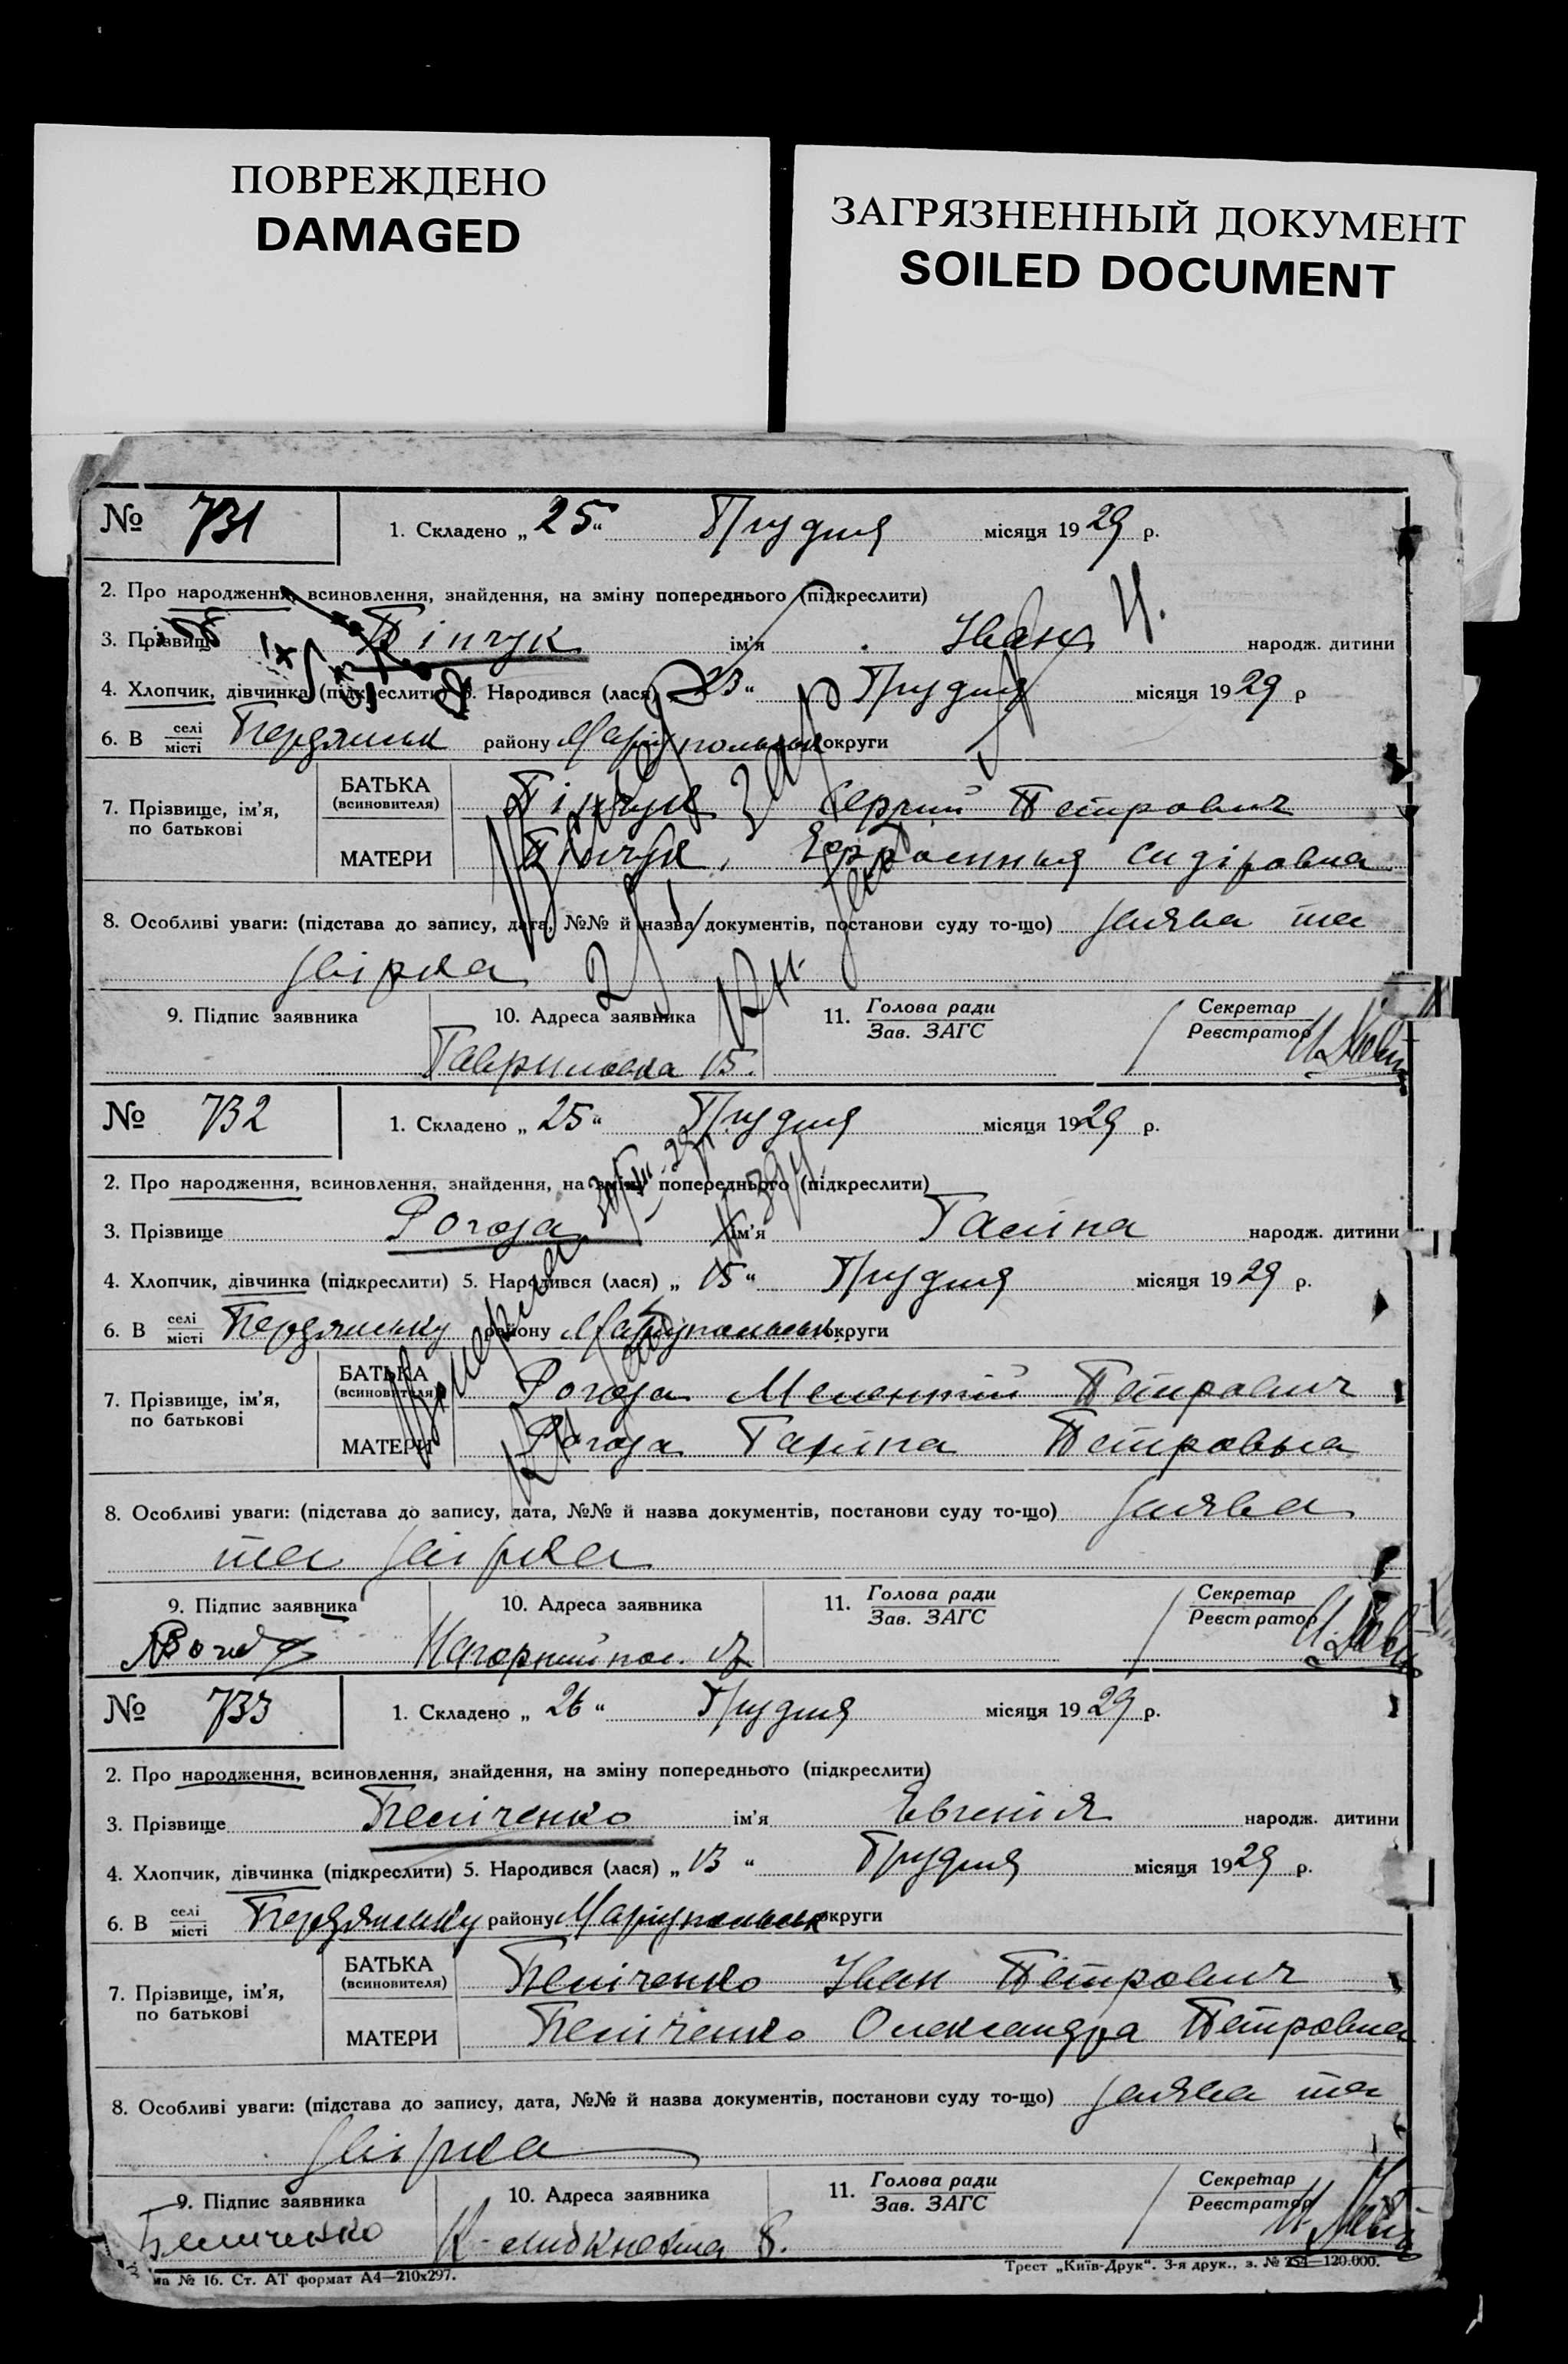 ПОВРЕЖДЕНО
DAMAGED
ЗАГРЯЗНЕННЫЙ ДОКУМЕНТ
SOILED DOCUMENT
№ 731 1. Складено „ 25 “ Грудня місяця 1929 р.
2. Про народження, всиновлення, знайдення, на зміну попереднього (підкреслити)
3. Прізвище Пінчук ім'я Іван народж. дитини
4. Хлопчик, дівчинка (підкреслити) 5. Народився (лася) „ 23 “ Грудня місяця 1929 р
6. В селі/місті Бердянськ району Маріупольськ округи
7. Прізвище, ім'я, по батькові
БАТЬКА (всиновителя) Пінчук Сергій Петрович
МАТЕРИ Пінчук, Сидіровна
8. Особливі уваги: (підстава до запису, дата, №№ й назва документів, постанови суду то-що) Заява та
звірка
9. Підпис заявника 10. Адреса заявника 11. Голова ради / Зав. ЗАГС Секретар / Реєстратор
Гавриловка 15.
№ 732 1. Складено „ 25 “ Грудня місяця 1929 р.
2. Про народження, всиновлення, знайдення, на зміну попереднього (підкреслити)
3. Прізвище Рогоза ім'я Галіна народж. дитини
4. Хлопчик, дівчинка (підкреслити) 5. Народився (лася) „ 15 “ Грудня місяця 1929 р.
6. В селі/місті Бердянську району Маріупольськ округи
7. Прізвище, ім'я, по батькові
БАТЬКА (всиновителя) Рогоза Мелентій Петрович
МАТЕРИ Рогоза Галіна Петровна
8. Особливі уваги: (підстава до запису, дата, №№ й назва документів, постанови суду то-що) Заява
та звірка
9. Підпис заявника 10. Адреса заявника 11. Голова ради / Зав. ЗАГС Секретар / Реєстратор
№ 733 1. Складено „ 26 “ Грудня місяця 1929 р.
2. Про народження, всиновлення, знайдення, на зміну попереднього (підкреслити)
3. Прізвище Беліченко ім'я Евгенія народж. дитини
4. Хлопчик, дівчинка (підкреслити) 5. Народився (лася) „ 13 “ Грудня місяця 1929 р.
6. В селі/місті Бердянську району Маріупольськ округи
7. Прізвище, ім'я, по батькові
БАТЬКА (всиновителя) Беліченко Іван Петрович
МАТЕРИ Беліченко Олександра Петровна
8. Особливі уваги: (підстава до запису, дата, №№ й назва документів, постанови суду то-що) Заява та
звірка
9. Підпис заявника 10. Адреса заявника 11. Голова ради / Зав. ЗАГС Секретар / Реєстратор
Беличенко
№ 16. Ст. АТ формат А4—210х297.
Трест „Київ-Друк“. 3-я друк., з. № 254—120.000.